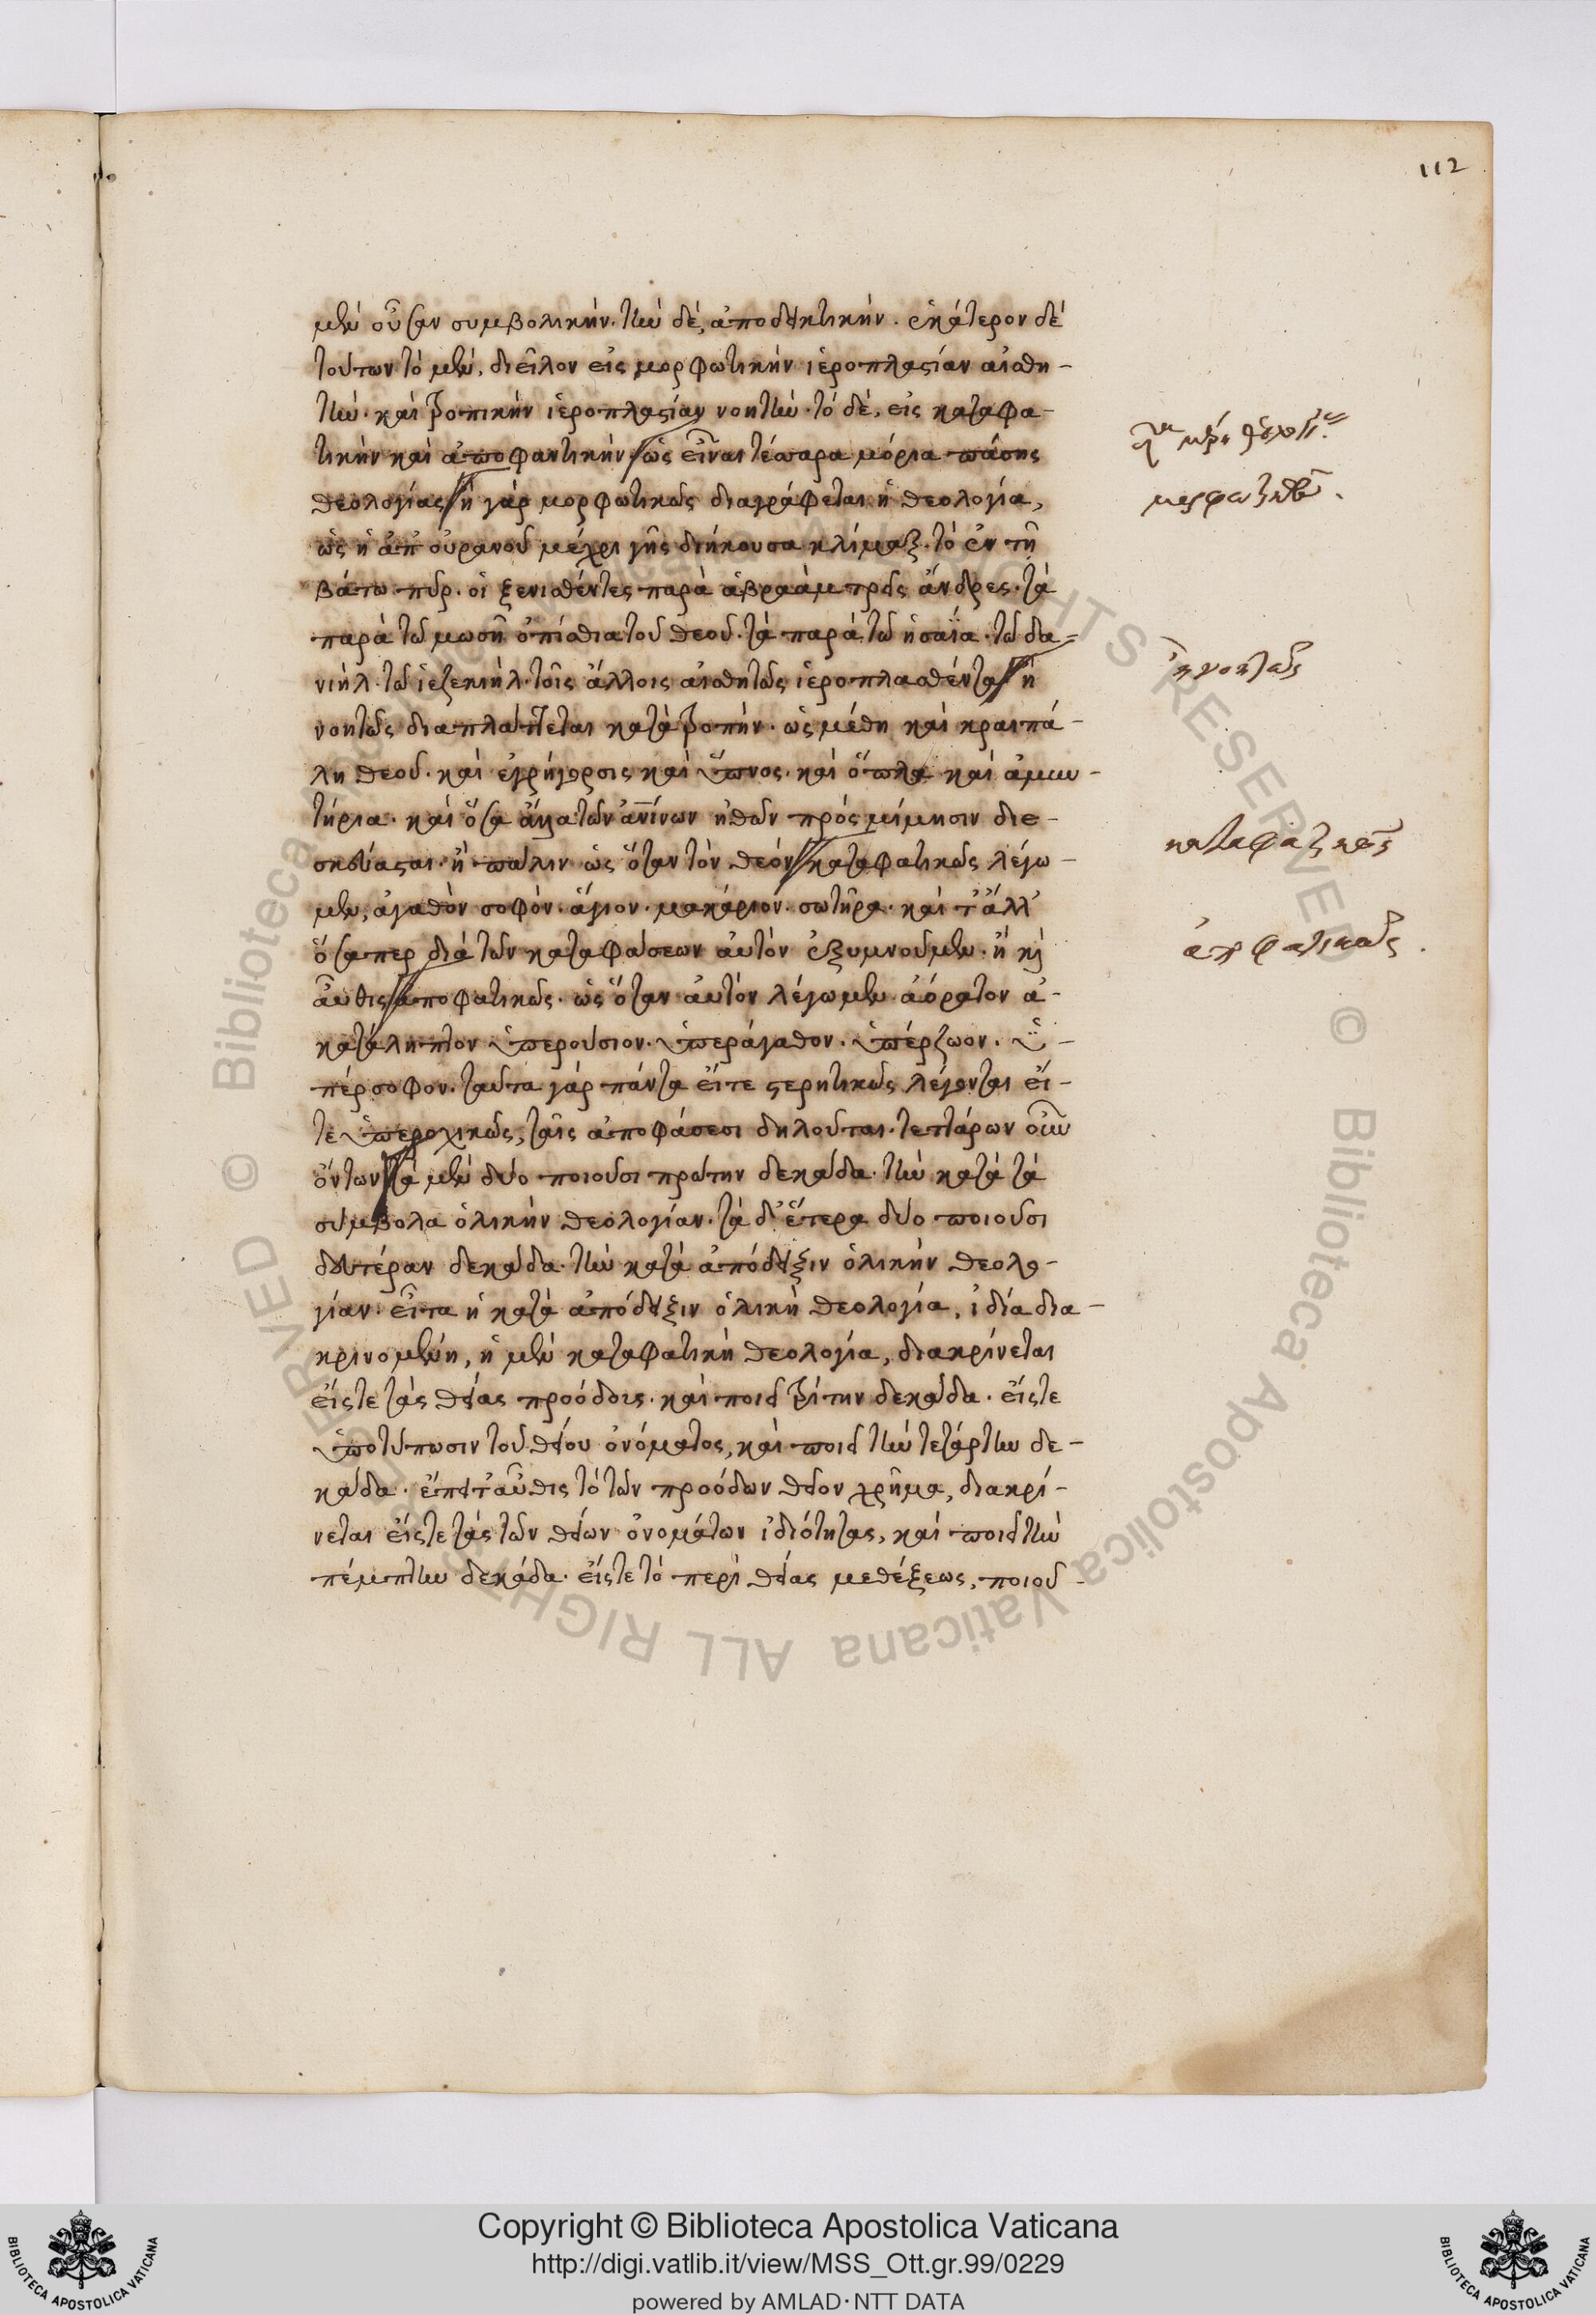 112
μὲν οὖσαν συμβολικήν· τὴν δὲ, ἀποδεικτικήν. ἑκάτερον δὲ
τούτων τὸ μὲν, διεῖλον εἰς μορφωτικὴν ἱεροπλαστίαν αἰσθη-
τήν· καὶ τροπικὴν ἱεροπλαστίαν νοητήν· τὸ δὲ, εἰς καταφα-
τικὴν καὶ ἀποφαντικὴν ὡς εἶναι τέσσαρα μόρια πάσης
θεολογίας ἢ γὰρ μορφωτικῶς διαγράφεται ἡ θεολογία,
ὡς ἡ ἀπ' οὐρανοῦ μέχρι γῆς διήκουσα κλίμαξ· τὸ ἐν τῆ
βάτω πῦρ. οἱ ξενισθέντες παρὰ ἀβραὰμ τρεῖς ἄνδρες· τὰ
παρὰ τῶ μωσῆ ὀπίσθια τοῦ θεοῦ. τὰ παρὰ τῶ ἡσαΐα. τῶ δα-
νιὴλ. τῶ ἰεζεκιὴλ. τοῖς ἄλλοις αἰσθητῶς ἱεροπλασθέντα ἢ
νοητῶς διαπλάττεται κατὰ τροπήν. ὡς μέθη καὶ κραιπά-
λη θεοῦ. καὶ ἐγρήγορσις καὶ ὕπνος. καὶ ὅπλα καὶ ἀμυν-
τήρια. καὶ ὅσα ἄλλα τῶν ἀνίνων ἠθῶν πρὸς μίμησιν διε-
σκεύασται. ἢ πάλιν ὡς ὅταν τὸν θεὸν καταφατικῶς λέγω-
μεν, ἀγαθὸν σοφὸν. ἅγιον. μακάριον. σωτῆρα. καὶ τ' ἄλλ'
ὅσαπερ διὰ τῶν καταφάσεων αὐτὸν ἐξυμνοῦμεν. ἢ κὶ
αὖθις ἀποφατικῶς. ὡς ὅταν αὐτὸν λέγωμεν ἀόρατον ἀ-
κατάληπτον ὑπερούσιον. ὑπεράγαθον. ὑπέρζωον. ὑ-
πέρσοφον. ταῦτα γὰρ πάντα εἴτε στερητικῶς λέγονται εἴ-
τε ὑπεροχικῶς, ταῖς ἀποφάσεσι δηλοῦται. τεττάρων οὖν
ὄντων τὰ μὲν δύο ποιοῦσι πρώτην δεκάδα. τὴν κατὰ τὰ
σύμβολα ὁλικὴν θεολογίαν. τὰ δ' ἕτερα δύο ποιοῦσι
δευτέραν δεκάδα. τὴν κατὰ ἀπόδειξιν ὁλικὴν θεολο-
γίαν. εἶτα ἡ κατὰ ἀπόδειξιν ὁλικὴ θεολογία, ἰδία δια-
κρινομένη, ἡ μὲν καταφατικὴ θεολογία, διακρίνεται
εἴς τε τὰς θείας προόδους. καὶ ποιεῖ τρίτην δεκάδα. εἴς τε
ὑποτύπωσιν τοῦ θείου ὀνόματος, καὶ ποιεῖ τὴν τετάρτην δε-
κάδα. ἔπειτ' αὖθις τὸ τῶν προόδων θεῖον χρῆμα, διακρί-
νεται εἴς τε τὰς τῶν θείων ὀνομάτων ἰδιότητας, καὶ ποιεῖ τὴν
πέμπτην δεκάδα. εἴς τε τὸ περὶ θείας μεθέξεως, ποιοῦ-
μορφωτικῶς.
ἢ νοητῶς
καταφατικῶς
ἀποφατικῶς.
Copyright © Biblioteca Apostolica Vaticana
http://digi.vatlib.it/view/MSS_Ott.gr.99/0229
powered by AMLAD · NTT DATA
BIBLIOTECA APOSTOLICA VATICANA
BIBLIOTECA APOSTOLICA VATICANA
© Biblioteca Apostolica Vaticana ALL RIGHTS RESERVED © Biblioteca Apostolica Vaticana ALL RIGHTS RESERVED